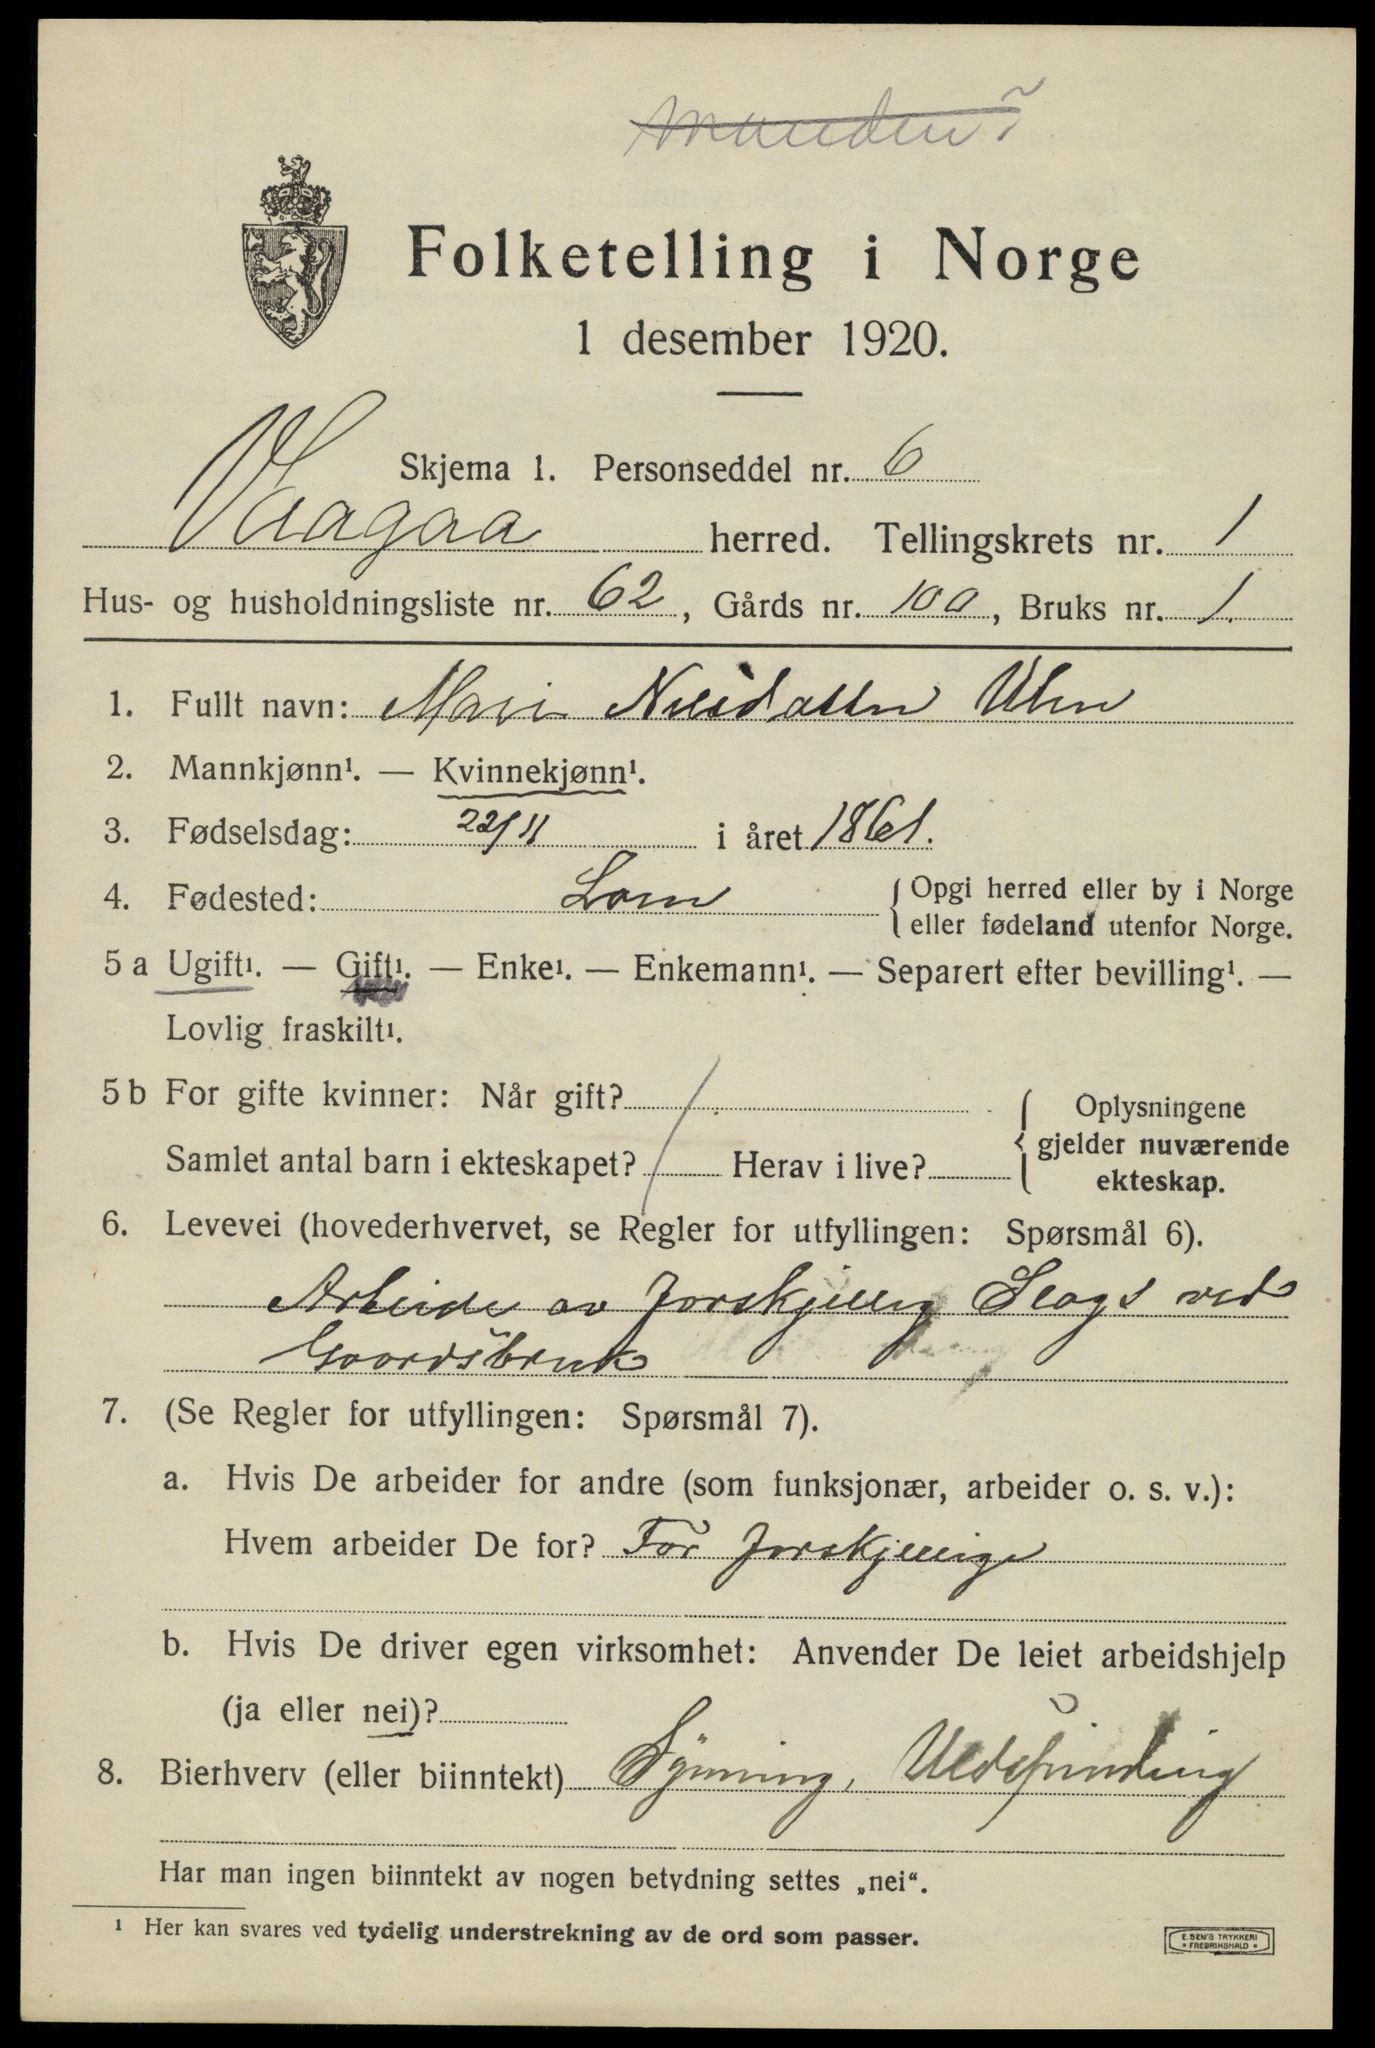 manden?
Folketelling i Norge
1 desember 1920.
Skjema 1. Personseddel nr. 6
Vaagaa herred. Tellingskrets nr. 1
Hus- og husholdningsliste nr. 62, Gårds nr. 100, Bruks nr. 1.
1. Fullt navn: Mari Nilsdatter Ulen
2. Mannkjønn¹. — Kvinnekjønn¹.
3. Fødselsdag: 22/11 i året 1861.
4. Fødested: Lom { Opgi herred eller by i Norge
eller fødeland utenfor Norge.
5 a Ugift¹. — Gift¹. — Enke¹. — Enkemann¹. — Separert efter bevilling¹. —
Lovlig fraskilt¹.
5 b For gifte kvinner: Når gift?
Samlet antal barn i ekteskapet? Herav i live?
{ Oplysningene
gjelder nuværende
ekteskap.
6. Levevei (hovederhvervet, se Regler for utfyllingen: Spørsmål 6).
Arbeide av forskjellig Slags ved
Gaardsbruk
7. (Se Regler for utfyllingen: Spørsmål 7).
a. Hvis De arbeider for andre (som funksjonær, arbeider o. s. v.):
Hvem arbeider De for? For forskjellige
b. Hvis De driver egen virksomhet: Anvender De leiet arbeidshjelp
(ja eller nei)?
8. Bierhverv (eller biinntekt) Syning, Uldspinding
Har man ingen biinntekt av nogen betydning settes „nei“.
¹ Her kan svares ved tydelig understrekning av de ord som passer.
E. SEM'S TRYKKERI
• FREDRIKSHALD •